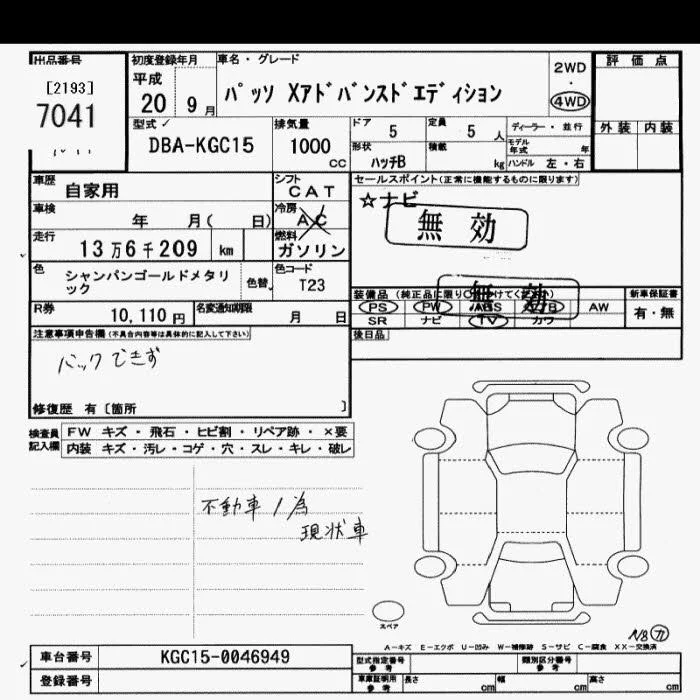 出品番号
[2193]
7041
初度登録年月
平成
20 9月
車名・グレード
パッソ Xアドバンスドエディション
2WD
4WD
評価点
外装 内装
型式
DBA-KGC15
排気量
1000
CC
ドア
5
定員
5 人
ディーラー・並行
モデル年式 年
形状
ハッチB
積載
kg
ハンドル 左・右
車歴
自家用
シフト
CAT
セールスポイント(正常に機能するものに限ります)
☆ナビ
無効
車検
年 月( 日)
冷房
AC
走行
13万6千209 km
燃料
ガソリン
色
シャンパンゴールドメタリック
色替
色コード
T23
無効
装備品
新車保証書
PS PW ABS AW
SR ナビ TV カワ
有・無
R券
10,110円
名変通知期限
月 日
後日品
注意事項申告欄(不具合内容等は具体的に記入して下さい)
バックできず
修復歴 有〔箇所 〕
検査員記入欄
FW キズ・飛石・ヒビ割・リペア跡・×要
内装 キズ・汚レ・コゲ・穴・スレ・キレ・破レ
不動車ノ為
現状車
スペア
N8 カ
A-キズ E-エクボ U-凹み W-補修跡 S-サビ C-腐食 XX-交換済
車台番号
KGC15-0046949
登録番号
型式指定番号
参考
類別区分番号
参考
車庫証明用
参考
長さ cm
幅 cm
高さ cm